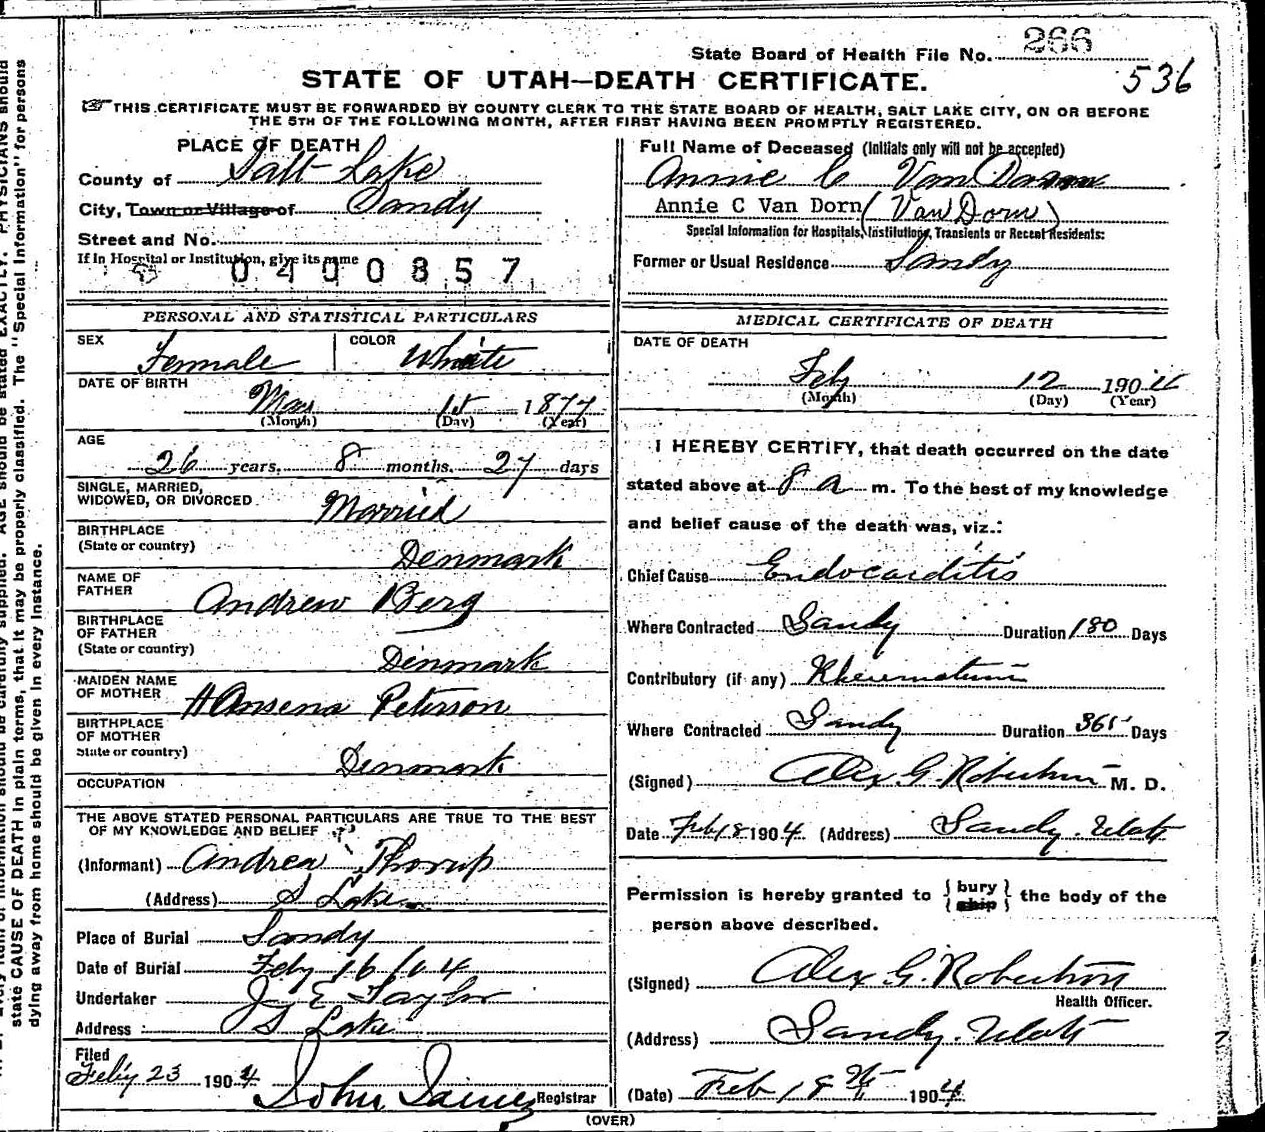 State Board of Health File No. 266
536
STATE OF UTAH—DEATH CERTIFICATE.
THIS CERTIFICATE MUST BE FORWARDED BY COUNTY CLERK TO THE STATE BOARD OF HEALTH, SALT LAKE CITY, ON OR BEFORE
THE 5TH OF THE FOLLOWING MONTH, AFTER FIRST HAVING BEEN PROMPTLY REGISTERED.
PLACE OF DEATH
County of Salt Lake
City, Town or Village of Sandy
Street and No.
If in Hospital or Institution, give its name
0400857
PERSONAL AND STATISTICAL PARTICULARS
SEX Female COLOR White
DATE OF BIRTH
May 1st 1877
(Month) (Day) (Year)
AGE
26 years, 8 months, 27 days
SINGLE, MARRIED,
WIDOWED, OR DIVORCED Married
BIRTHPLACE
(State or country) Denmark
NAME OF
FATHER Andrew Berg
BIRTHPLACE
OF FATHER
(State or country) Dinmark
MAIDEN NAME
OF MOTHER HAnsena Peterson
BIRTHPLACE
OF MOTHER
State or country) Denmark
OCCUPATION
THE ABOVE STATED PERSONAL PARTICULARS ARE TRUE TO THE BEST
OF MY KNOWLEDGE AND BELIEF
(Informant) Andrea Thorup
(Address) S Lake
Place of Burial Sandy
Date of Burial Feby 16/04
Undertaker J E Taylor
Address S Lake
Filed
Feby 23 1904 John James Registrar
Full Name of Deceased (Initials only will not be accepted)
Annie C Van Dorn
Annie C Van Dorn (Van Dorn)
Special Information for Hospitals, Institutions, Transients or Recent Residents:
Former or Usual Residence Sandy
MEDICAL CERTIFICATE OF DEATH
DATE OF DEATH
Feby 12 190
(Month) (Day) (Year)
I HEREBY CERTIFY, that death occurred on the date
stated above at 8 a m. To the best of my knowledge
and belief cause of the death was, viz.:
Chief Cause Endocarditis
Where Contracted Sandy Duration 180 Days
Contributory (if any) Rheumatism
Where Contracted Sandy Duration 365 Days
(Signed) Alex G. Robertson M. D.
Date Feb 18 1904 (Address) Sandy. Utah
Permission is hereby granted to {bury
ship} the body of the
person above described.
(Signed) Alex G. Robertson
Health Officer.
(Address) Sandy. Utah
(Date) Feb 18th 1904
(OVER)
state CAUSE OF DEATH in plain terms, that it may be properly classified. The "Special Information" for persons
dying away from home should be given in every instance.